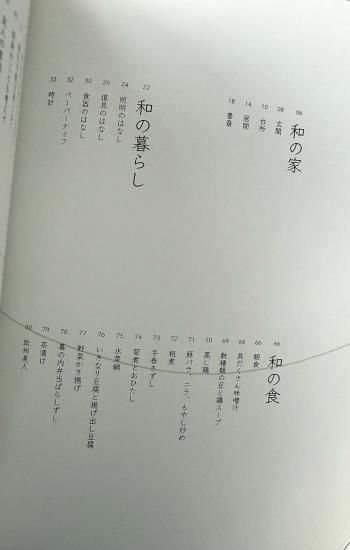 06
和の家
08
玄関
10
台所
14
居間
18
書斎
22
和の暮らし
24
照明のはなし
26
道具のはなし
30
食器のはなし
32
ペーパーナイフ
33
時計
66
和の食
66
朝食
68
具だくさん味噌汁
69
数種類の豆と鶏スープ
70
蒸し鶏
71
豚バラ、ニラ、もやし炒め
72
粗煮
73
手巻きずし
74
筍煮とおひたし
75
水菜鍋
76
いきなり豆腐と揚げ出し豆腐
77
野菜かき揚げ
78
幕の内弁当ばらしずし
79
茶漬け
80
欧州美人